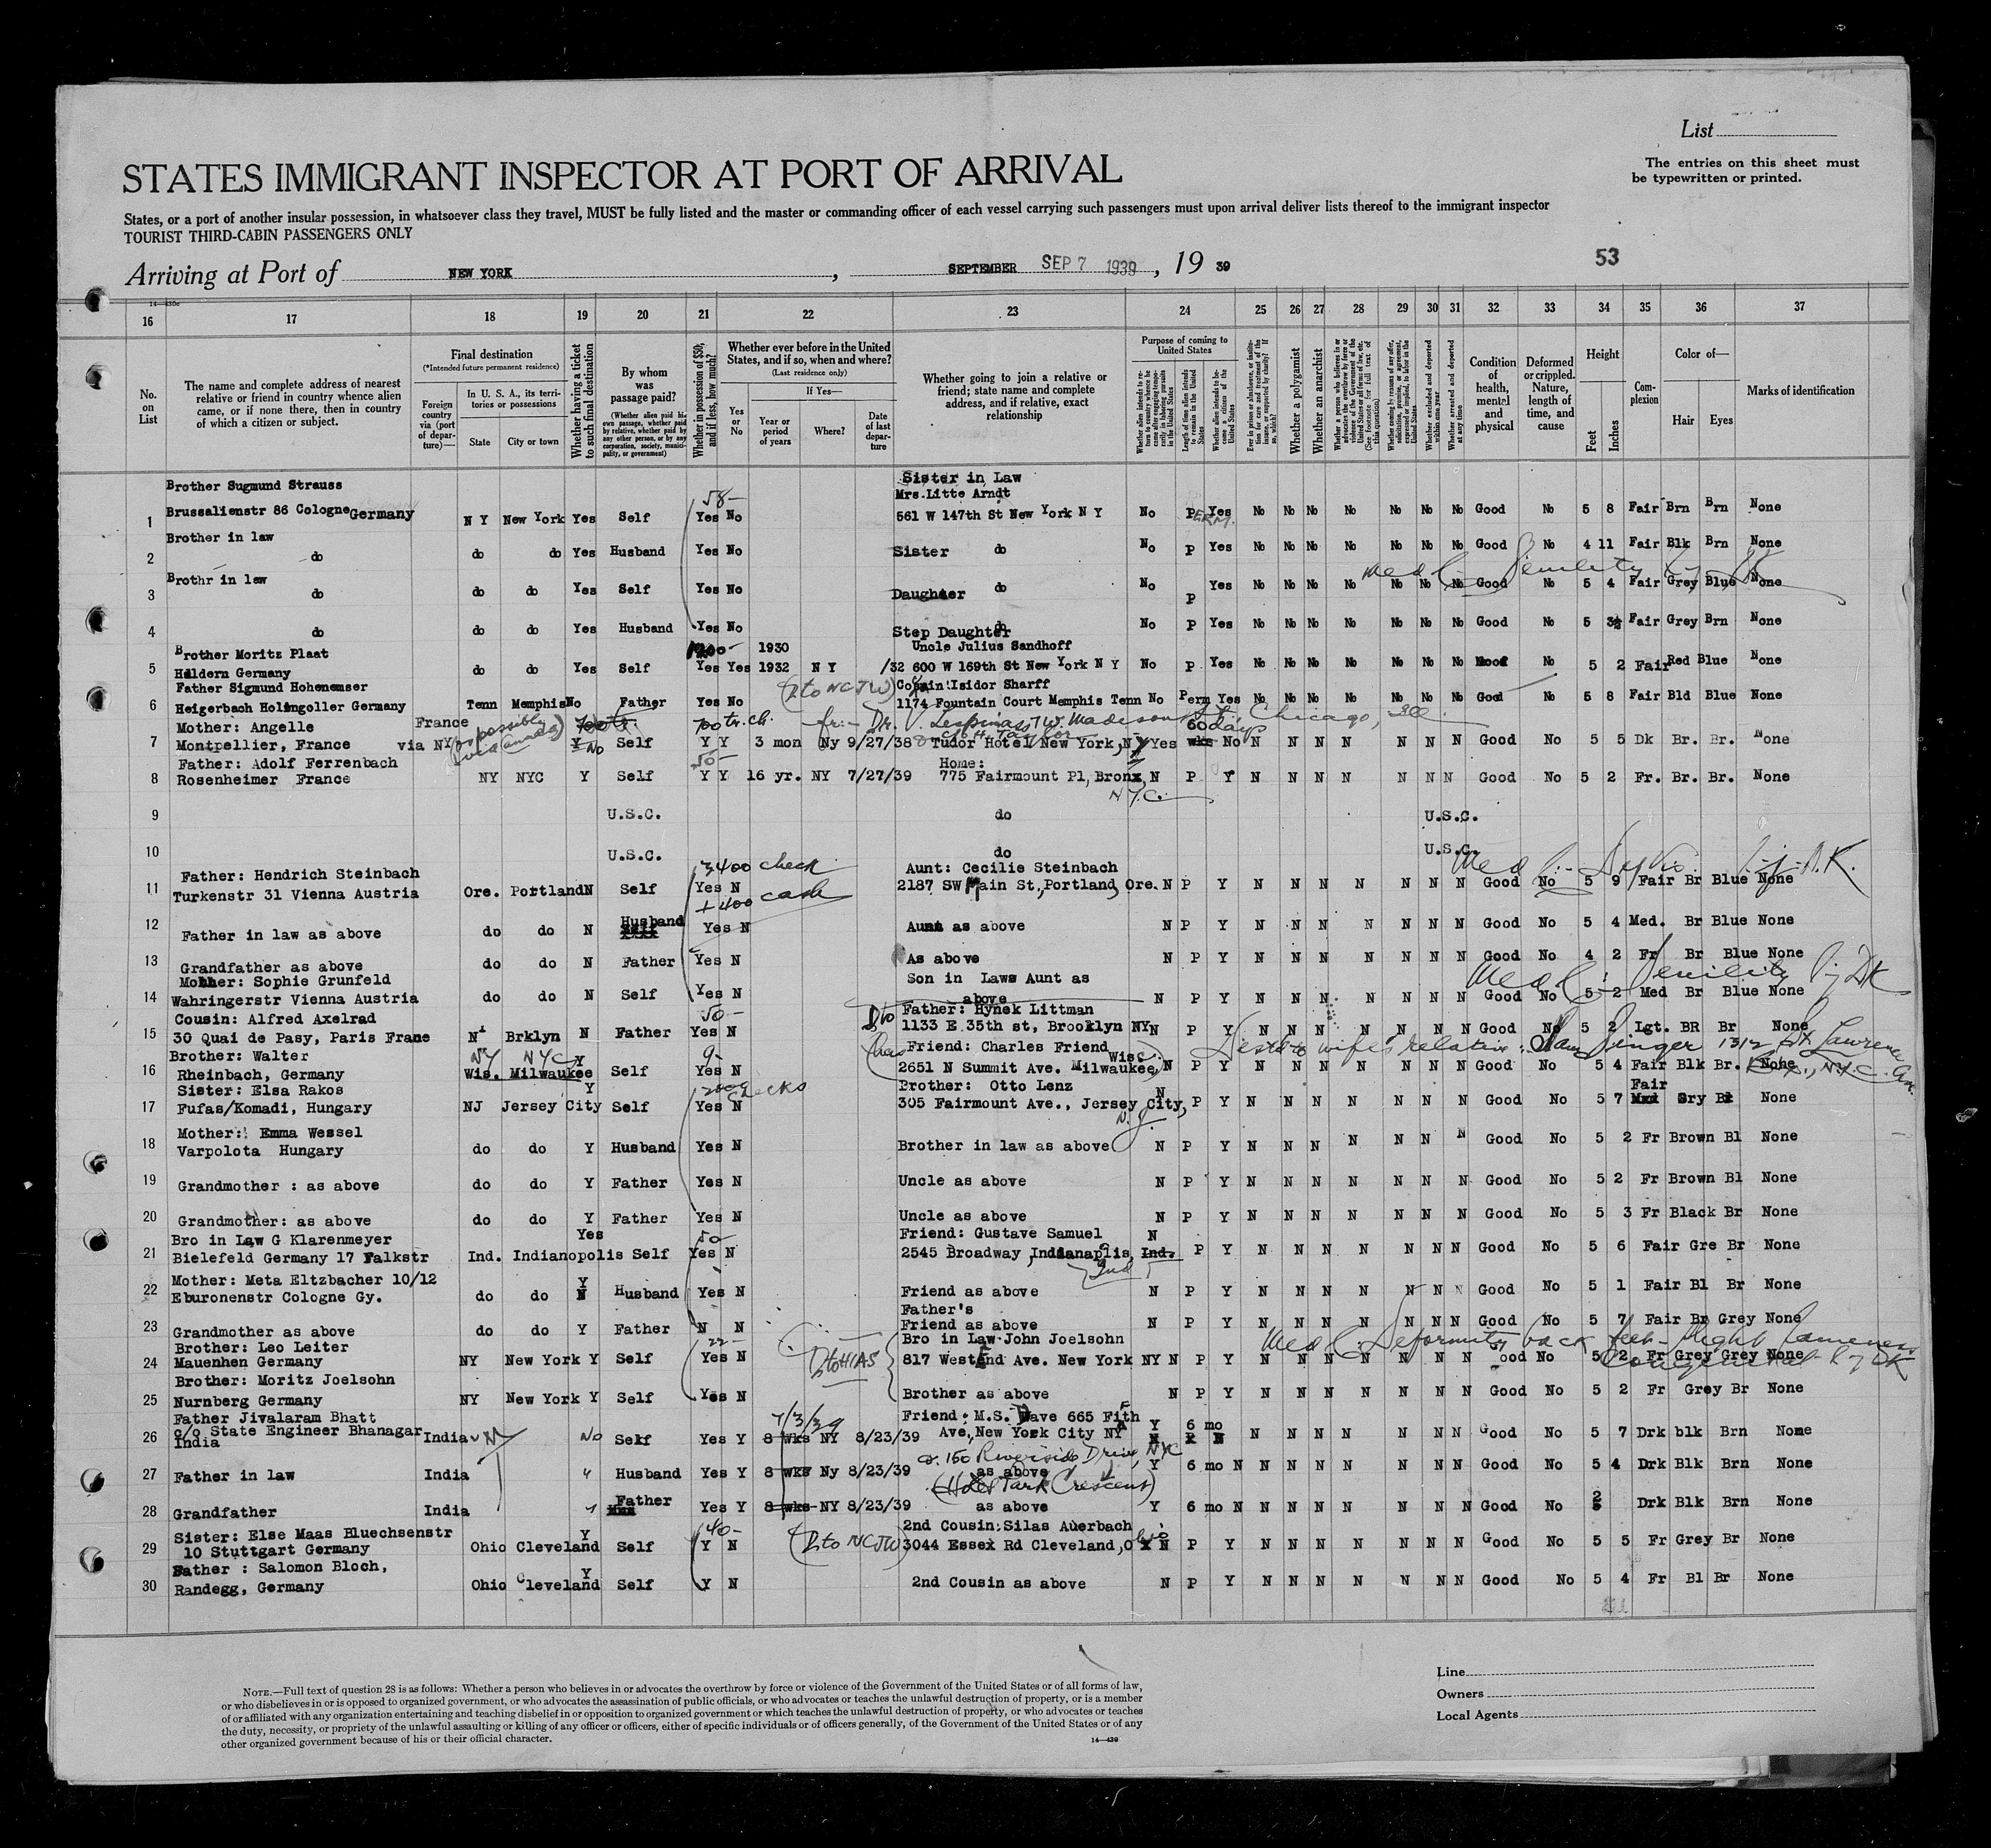 List
The entries on this sheet must
be typewritten or printed.
STATES IMMIGRANT INSPECTOR AT PORT OF ARRIVAL
States, or a port of another insular possession, in whatsoever class they travel, MUST be fully listed and the master or commanding officer of each vessel carrying such passengers must upon arrival deliver lists thereof to the immigrant inspector
TOURIST THIRD-CABIN PASSENGERS ONLY
Arriving at Port of NEW YORK, SEPTEMBER SEP 7 1939, 19 39
53
16 17 18 19 20 21 22 23 24 25 26 27 28 29 30 31 32 33 34 35 36 37
No. on List
The name and complete address of nearest relative or friend in country whence alien came, or if none there, then in country of which a citizen or subject.
Final destination
(*Intended future permanent residence)
Foreign country via (port of departure)—
In U. S. A., its territories or possessions
State
City or town
Whether having a ticket to such final destination
By whom was passage paid?
(Whether alien paid his own passage, whether paid by relative, whether paid by any other person, or by any corporation, society, municipality, or government)
Whether in possession of $50, and if less, how much?
Whether ever before in the United States, and if so, when and where?
(Last residence only)
Yes or No
If Yes—
Year or period of years
Where?
Date of last departure
Whether going to join a relative or friend; state name and complete address, and if relative, exact relationship
Purpose of coming to United States
Length of time alien intends to remain in the United States
Whether alien intends to become a citizen of the United States
Whether a polygamist
Whether an anarchist
Whether excluded and deported within one year
Whether arrested and deported at any time
Condition of health, mental and physical
Deformed or crippled. Nature, length of time, and cause
Height
Feet
Inches
Complexion
Color of—
Hair
Eyes
Marks of identification
Brother Sugmund Strauss Sister in Law
Mrs. Litte Arndt
1 Brussalienstr 86 Cologne Germany N Y New York Yes Self 58- Yes No 561 W 147th St New York N Y No PERM. Yes No No No No No No No Good No 5 8 Fair Brn Brn None
Brother in law
2 do do do Yes Husband Yes No Sister do No P Yes No No No No No No No Good No 4 11 Fair Blk Brn None
Brothr in law
3 do do do Yes Self Yes No Daughter do No P Yes No No No No No No No Good No 5 4 Fair Grey Blue None
4 do do do Yes Husband Yes No Step Daughter do No P Yes No No No No No No No Good No 5 3½ Fair Grey Brn None
Brother Moritz Plaat 1930 Uncle Julius Sandhoff
5 Haldern Germany do do Yes Self Yes Yes 1932 N Y /32 600 W 169th St New York N Y No P Yes No No No No No No No Good No 5 2 Fair Red Blue None
Father Sigmund Hohenemser (D to NCJW) Cousin Isidor Sharff
6 Heigerbach Holingoller Germany Tenn Memphis No Father Yes No 1174 Fountain Court Memphis Tenn No Perm Yes No No No No No No No Good No 5 8 Fair Bld Blue None
Mother: Angelle France (or possibly via Canada) 700 tr. ch. fr:- Dr. V. Lespinas, 7 W. Madison St, Chicago, Ill. 60 days
7 Montpellier, France via NY No Self Y Y 3 mon Ny 9/27/38 Tudor Hotel New York, NY Yes wks No N N N N N N N Good No 5 5 Dk Br. Br. None
Father: Adolf Ferrenbach 50- Home:
8 Rosenheimer France NY NYC Y Self Y Y 16 yr. NY 7/27/39 775 Fairmount Pl, Bronx, N P Y N N N N N N N Good No 5 2 Fr. Br. Br. None
N.Y.C.
9 U.S.C. do U.S.C.
10 U.S.C. do U.S.C.
Father: Hendrich Steinbach 3400 check Aunt: Cecilie Steinbach
11 Turkenstr 31 Vienna Austria Ore. Portland N Self Yes N 2187 SW Main St, Portland, Ore. N P Y N N N N N N N Good No 5 9 Fair Br Blue None
+ 400 cash
12 Father in law as above do do N Husband Yes N Aunt as above N P Y N N N N N N N Good No 5 4 Med. Br Blue None
13 Grandfather as above do do N Father Yes N As above N P Y N N N N N N N Good No 4 2 Fr Br Blue None
Mother: Sophie Grunfeld Son in Laws Aunt as Med C:- Senility
14 Wahringerstr Vienna Austria do do N Self Yes N above N P Y N N N N N N N Good No 5 2 Med Br Blue None
Cousin: Alfred Axelrad 50- D to Father: Hynek Littman
15 30 Quai de Pasy, Paris Frane Brklyn N Father Yes N 1133 E 35th st, Brooklyn NY N P Y N N N N N N N Good No 5 2 Lgt. BR Br None
Brother: Walter NY NYC Y 9- Friend: Charles Friend Wisc. Dest. to wife's relative: Sam Singer 1312 St Lawrence
16 Rheinbach, Germany Wis. Milwaukee Self Yes N 2651 N Summit Ave. Milwaukee, N P Y N N N N N N N Good No 5 4 Fair Blk Br. None
Sister: Elsa Rakos Y checks Brother: Otto Lenz N Fair
17 Fufas/Komadi, Hungary NJ Jersey City Self Yes N 305 Fairmount Ave., Jersey City, P Y N N N N N N N Good No 5 7 Gry None
N.J.
Mother: Emma Wessel
18 Varpolota Hungary do do Y Husband Yes N Brother in law as above N P Y N N N N N N N Good No 5 2 Fr Brown Bl None
19 Grandmother : as above do do Y Father Yes N Uncle as above N P Y N N N N N N N Good No 5 2 Fr Brown Bl None
20 Grandmother: as above do do Y Father Yes N Uncle as above N P Y N N N N N N N Good No 5 3 Fr Black Br None
Bro in Law G Klarenmeyer Yes 50- Friend: Gustave Samuel N
21 Bielefeld Germany 17 Falkstr Ind. Indianopolis Self Yes N 2545 Broadway, Indianaplis, Ind. P Y N N N N N N N Good No 5 6 Fair Gre Br None
Ind
Mother: Meta Eltzbacher 10/12 Y
22 Eburonenstr Cologne Gy. do do N Husband Yes N Friend as above N P Y N N N N N N N Good No 5 1 Fair Bl Br None
Father's
23 Grandmother as above do do Y Father N N Friend as above N P Y N N N N N N N Good No 5 7 Fair Br Grey None
Brother: Leo Leiter 22- Bro in Law John Joelsohn Med C: Deformity back slight lameness
24 Mauenhen Germany NY New York Y Self Yes N D to HIAS 817 West End Ave. New York NY N P Y N N N N N N N Good No 5 2 Fr Grey Grey None congenital
Brother: Moritz Joelsohn
25 Nurnberg Germany NY New York Y Self Yes N Brother as above N P Y N N N N N N N Good No 5 2 Fr Grey Br None
Father Jivalaram Bhatt 7/3/39 Friend: M.S. Dave 665 Fifth
26 c/o State Engineer Bhanagar India No Self Yes Y 8 wks NY 8/23/39 Ave, New York City NY Y 6 mo N N N N N N N N Good No 5 7 Drk blk Brn None
India
160 Riverside Drive, NYC
27 Father in law India Y Husband Yes Y 8 wks Ny 8/23/39 as above Y 6 mo N N N N N N N N Good No 5 4 Drk Blk Brn None
(Hotel Park Crescent)
28 Grandfather India Father Yes Y 8 wks NY 8/23/39 as above Y 6 mo N N N N N N N N Good No 2 Drk Blk Brn None
Sister: Else Maas Bluechsenstr Y 40- 2nd Cousin: Silas Auerbach
29 10 Stuttgart Germany Ohio Cleveland Self Y N (D to NCJW) 3044 Essex Rd Cleveland, Ohio N P Y N N N N N N N Good No 5 5 Fr Grey Br None
Father : Salomon Bloch, Y
30 Randegg, Germany Ohio Cleveland Self Y N 2nd Cousin as above N P Y N N N N N N N Good No 5 4 Fr Bl Br None
NOTE.—Full text of question 28 is as follows: Whether a person who believes in or advocates the overthrow by force or violence of the Government of the United States or of all forms of law,
or who disbelieves in or is opposed to organized government, or who advocates the assassination of public officials, or who advocates or teaches the unlawful destruction of property, or is a member
of or affiliated with any organization entertaining and teaching disbelief in or opposition to organized government or which teaches the unlawful destruction of property, or who advocates or teaches
the duty, necessity, or propriety of the unlawful assaulting or killing of any officer or officers, either of specific individuals or of officers generally, of the Government of the United States or of any
other organized government because of his or their official character.
14—430
Line
Owners
Local Agents